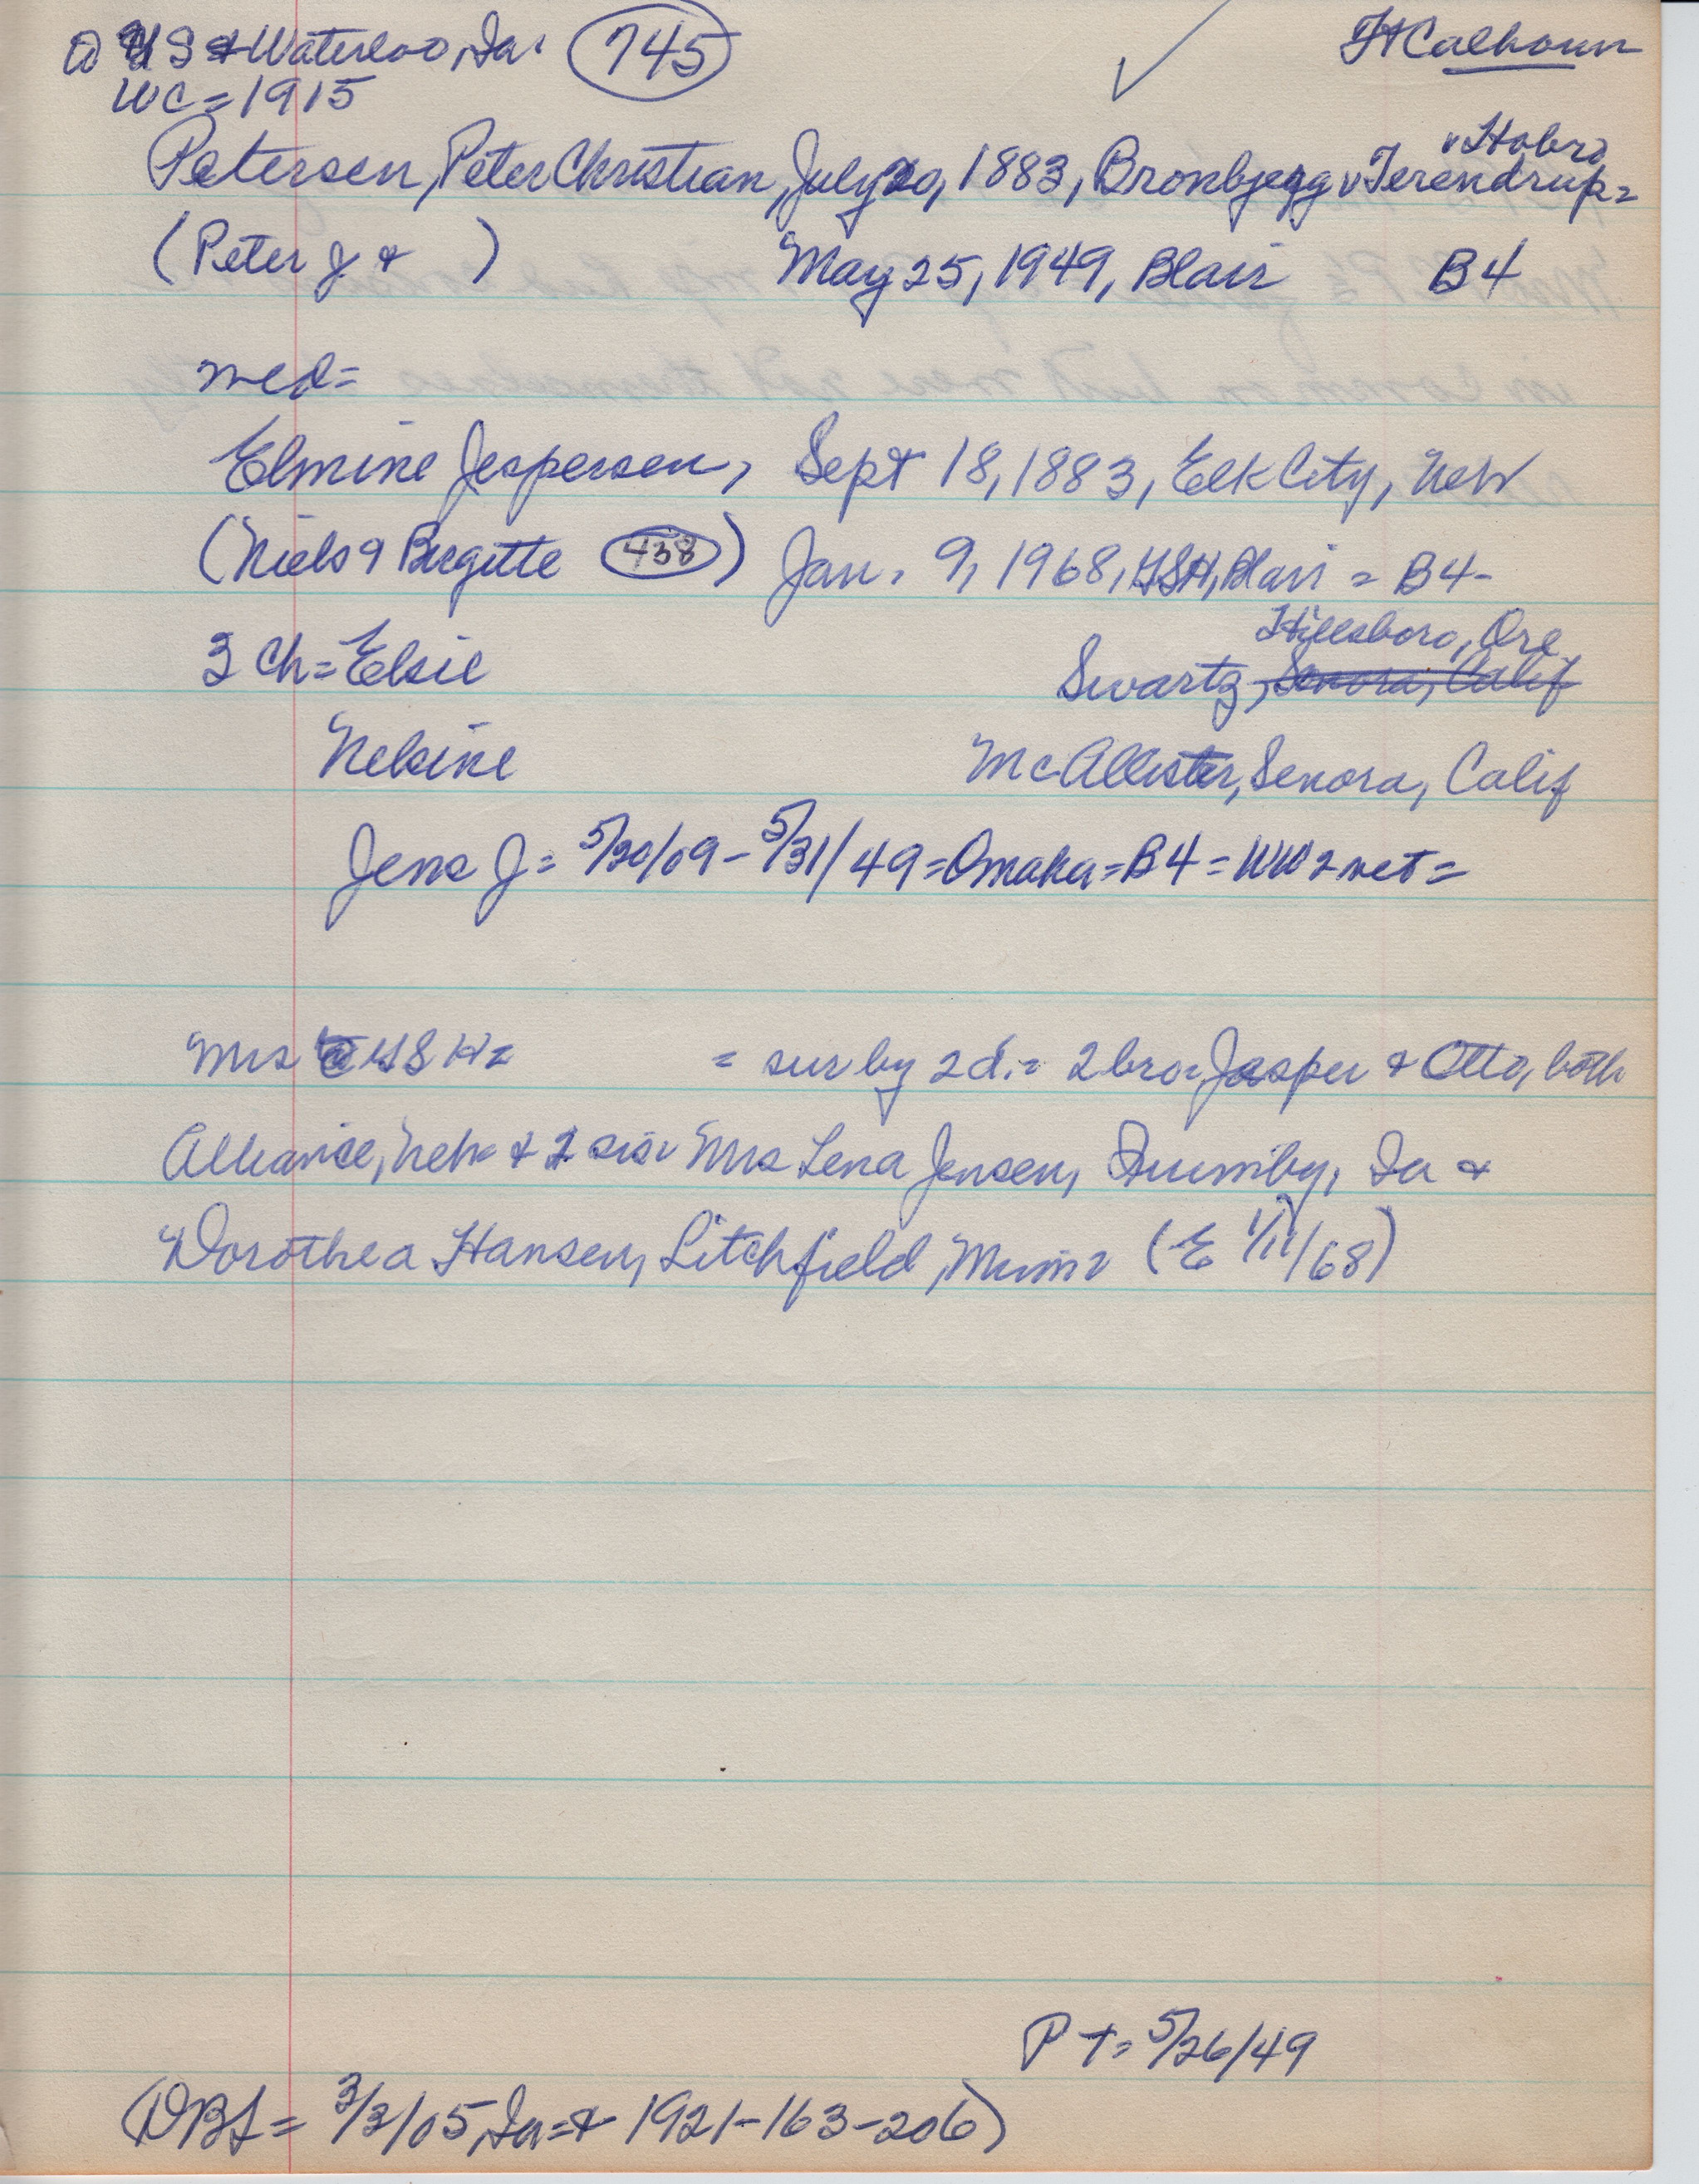 a US & Waterloo, Ia. 745 Ft Calhoun
WC = 1915
v Hobro
Petersen, Peter Christian, July 20, 1883, Bronbjerg v Terendrup =
(Peter J & ) May 25, 1949, Blair B4
med =
Elmine Jespersen, Sept 18, 1883, Elk City, Neb
(Niels & Birgitte 438) Jan. 9, 1968, GSH, Blair = B4-
Hillsboro, Ore
3 Ch = Elsie Swartz, Senora, Calif
Nelsine McAllister, Senora, Calif
Jens J = 5/30/09 - 5/31/49 = Omaha = B4 = WW2 vet =
Mrs GSH = = sur by 2 d. = 2 bro = Jasper & Otto, both
Alliance, Neb & 2 sis = Mrs Lena Jensen, Ia &
Dorothea Hansen, Litchfield, Minn = (E 1/11/68)
PT = 5/26/49
(DBL = 3/3/05, Ia = & 1921-163-206)